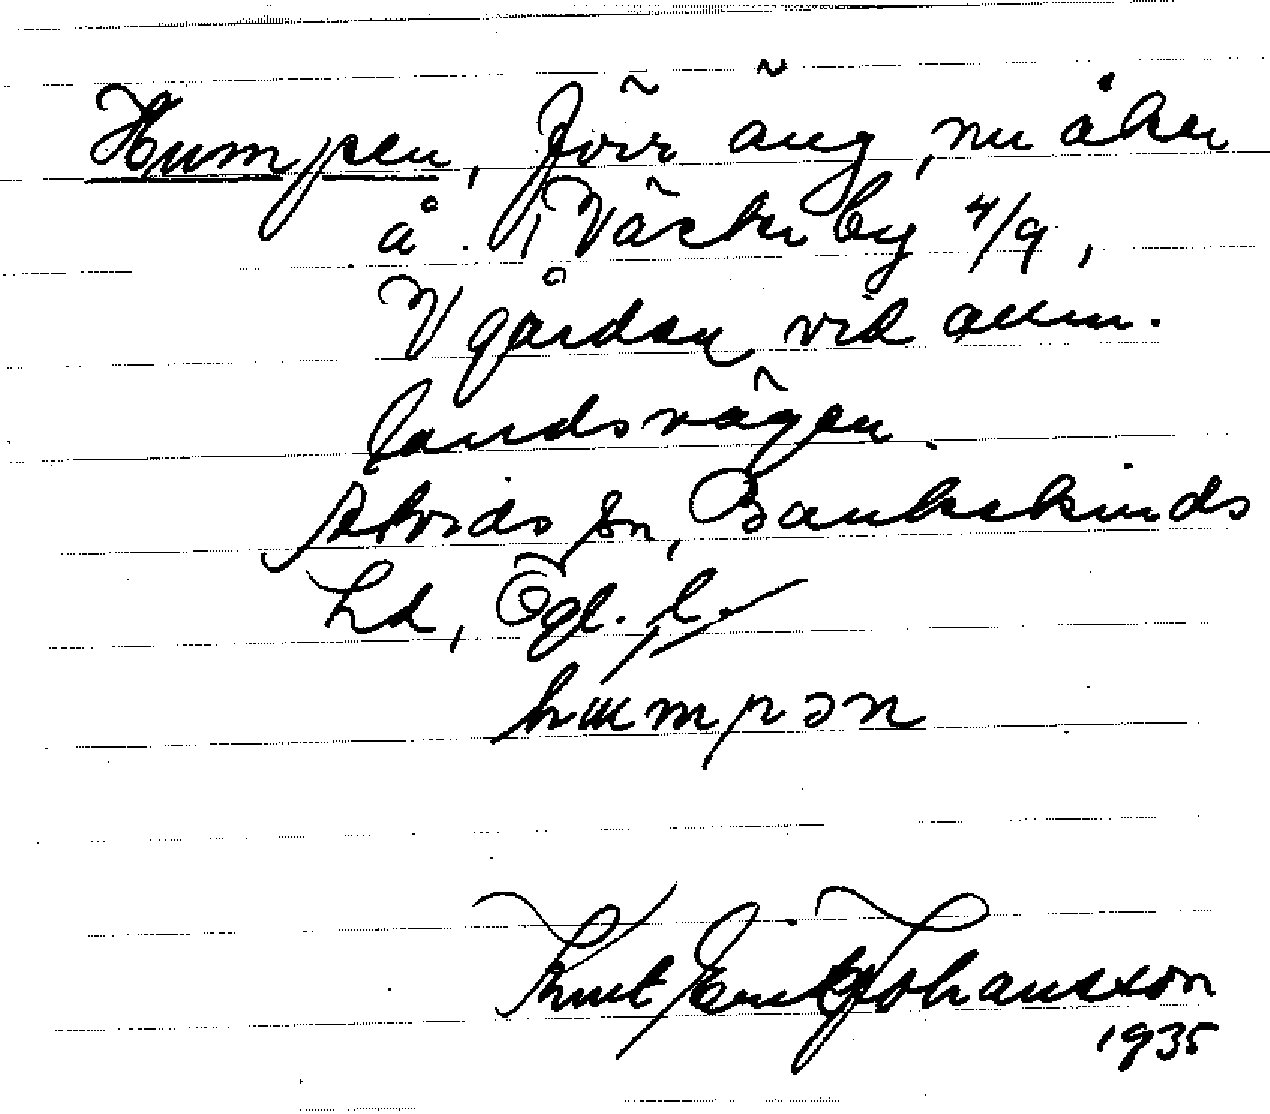 Humpen, förr äng, nu åker
å . 1 Västerby 4/9,
V gården vid allm.
landsvägen.
Askeryds sn, Bankekinds
hd, Ögl. l.
humpən
Knut Erik Johansson
1935